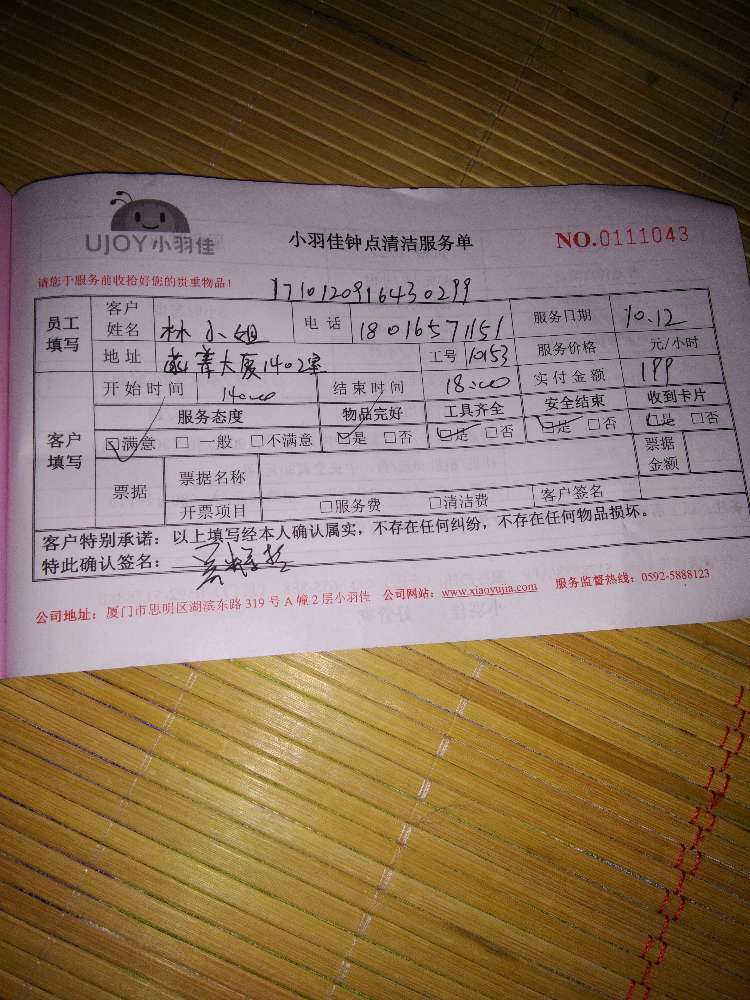 UJOY小羽佳
小羽佳钟点清洁服务单
NO.0111043
请您于服务前收拾好您的贵重物品！
171012091643 0299
员工填写 客户姓名 林小姐 电话 18016571151 服务日期 10.12
地址 大厦1402室 工号 10153 服务价格 元/小时
客户填写 开始时间 14:00 结束时间 18:00 实付金额 199
服务态度 物品完好 工具齐全 安全结束 收到卡片
☑满意 □一般 □不满意 ☑是 □否 ☑是 □否 ☑是 □否 ☑是 □否
票据 票据名称 票据金额
开票项目 □服务费 □清洁费 客户签名
客户特别承诺：以上填写经本人确认属实，不存在任何纠纷，不存在任何物品损坏。
特此确认签名：
公司地址：厦门市思明区湖滨东路319号A幢2层小羽佳 公司网站：www.xiaoyujia.com 服务监督热线：0592-5888123